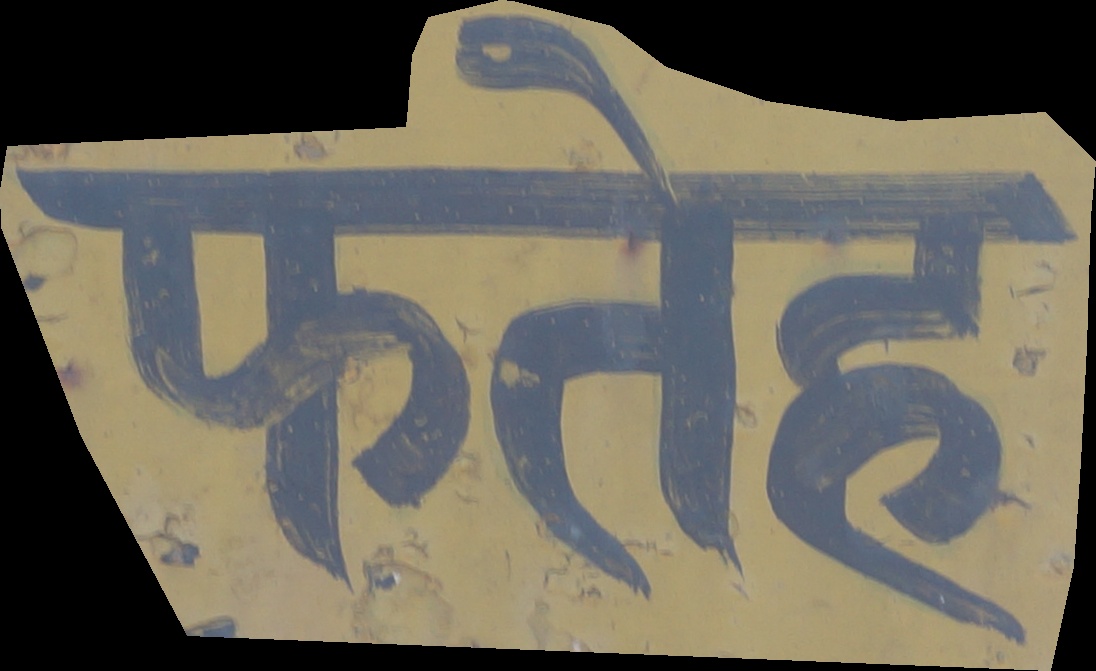 फतेह